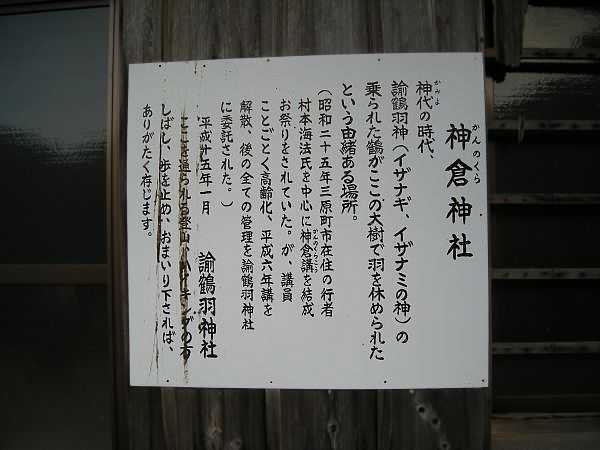 神倉神社
かんのくら
神代の時代、
かみよ
諭鶴羽神（イザナギ、イザナミの神）の
乗られた鶴がここの大樹で羽を休められた
という由緒ある場所。
（昭和二十五年三原町市在住の行者
村本海法氏を中心に神倉講を結成
かんのくらこう
お祭りをされていた。が、講員
ことごとく高齢化、平成六年講を
解散、後の全ての管理を諭鶴羽神社
に委託された。）
平成十五年一月　諭鶴羽神社
ここを通られる登山、ハイキングの方
しばし、歩を止め、おまいり下されば、
ありがたく存じます。